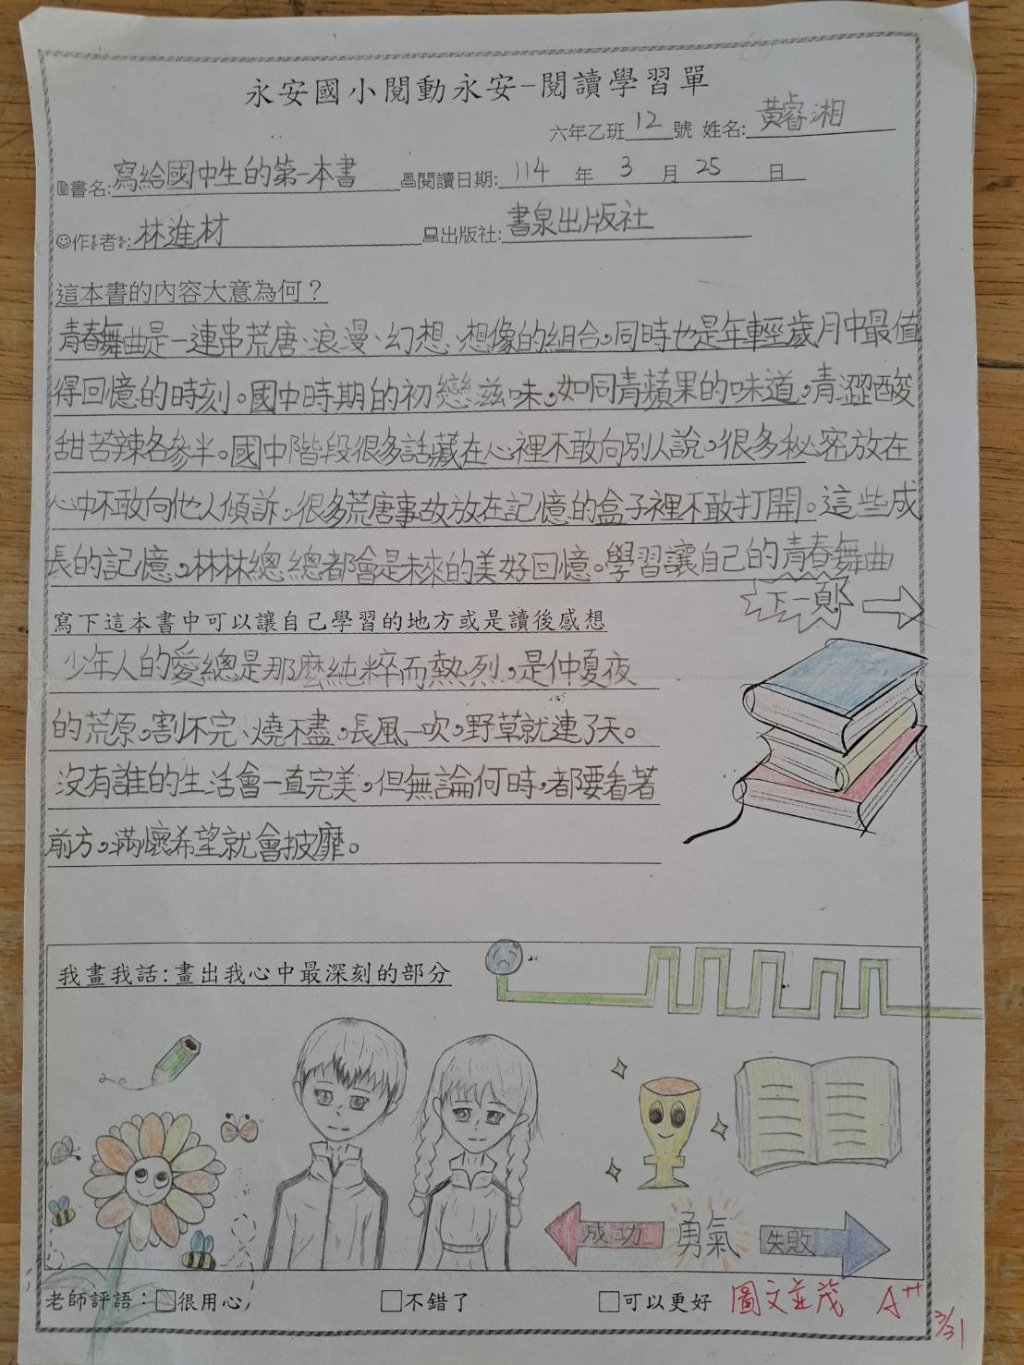 永安國小閱動永安-閱讀學習單
六年乙班12號 姓名:黃睿湘
書名:寫給國中生的第一本書 閱讀日期:114年3月25日
作者:林進材 出版社:書泉出版社
這本書的內容大意為何？
青春舞曲是一連串荒唐、浪漫、幻想、想像的組合。同時也是年輕歲月中最值
得回憶的時刻。國中時期的初戀滋味，如同青蘋果的味道，青澀酸
甜苦辣各參半。國中階段很多話藏在心裡不敢向別人說。很多秘密放在
心中不敢向他人傾訴。很多荒唐事故放在記憶的盒子裡不敢打開。這些成
長的記憶，林林總總都會是未來的美好回憶。學習讓自己的青春舞曲
下一頁
寫下這本書中可以讓自己學習的地方或是讀後感想
少年人的愛總是那麼純粹而熱烈，是仲夏夜
的荒原。割不完、燒不盡。長風一吹，野草就連了天。
沒有誰的生活會一直完美。但無論何時，都要看著
前方。滿懷希望就會披靡。
我畫我話:畫出我心中最深刻的部分
成功 勇氣 失敗
老師評語：很用心 不錯了 可以更好 圖文並茂 A++
3/31